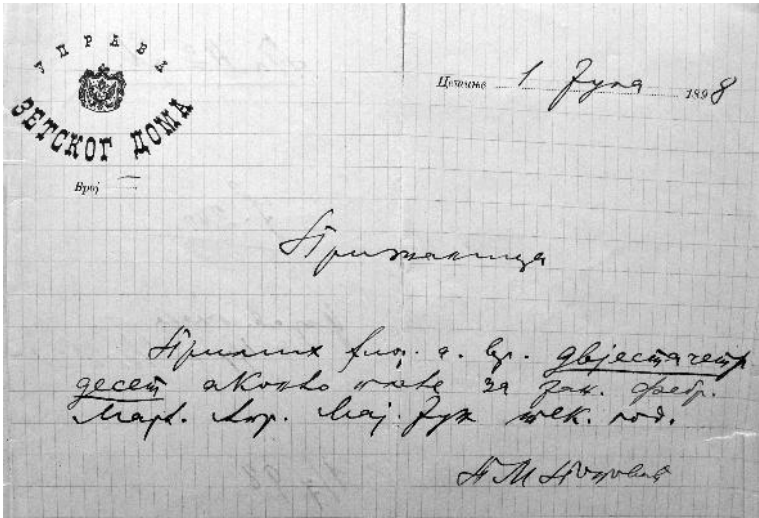 УПРАВА
ЗЕТСКОГ ДОМА
Цетиње 1 Јула 1898
Број —
Признаница
Примих фиор. а. вр. двјестачетр
десет аконто плате за јан. фебр.
Март. Апр. Мај. Јун тек. год.
П М Поповић